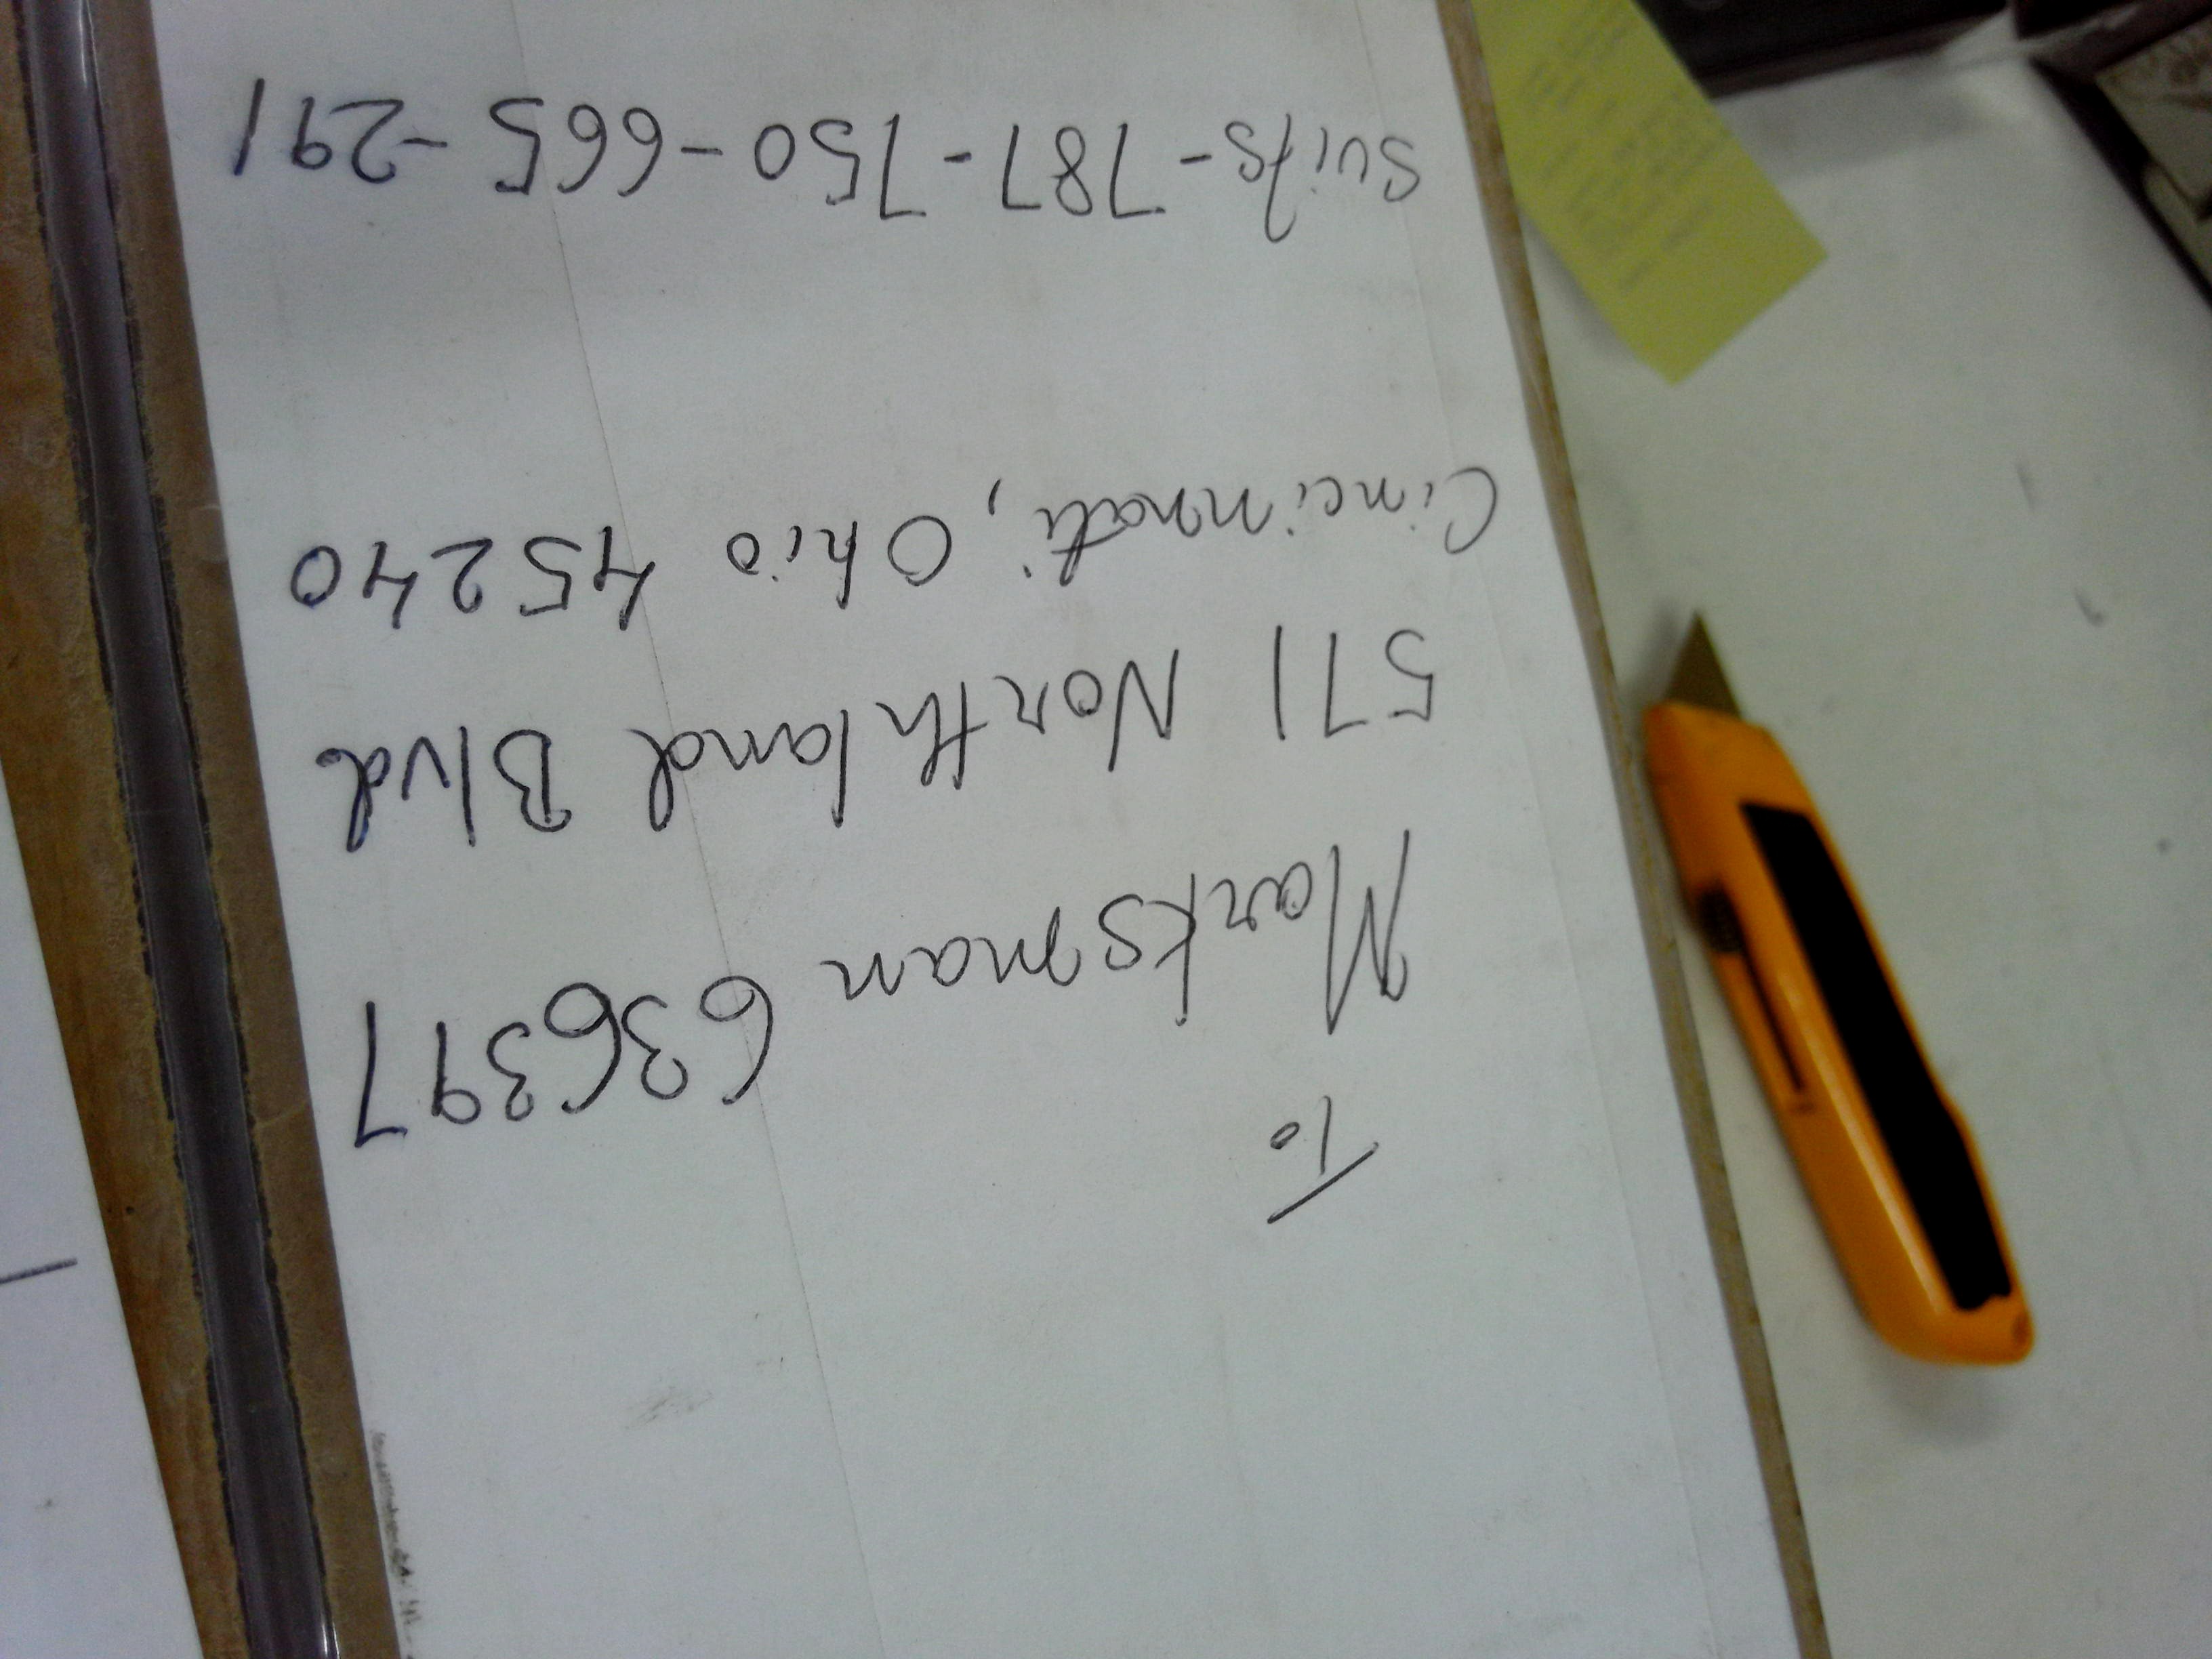 To
Marksman 636397
571 Northland Blvd
Cincinnati, Ohio 45240
Suifs-787-750-665-291